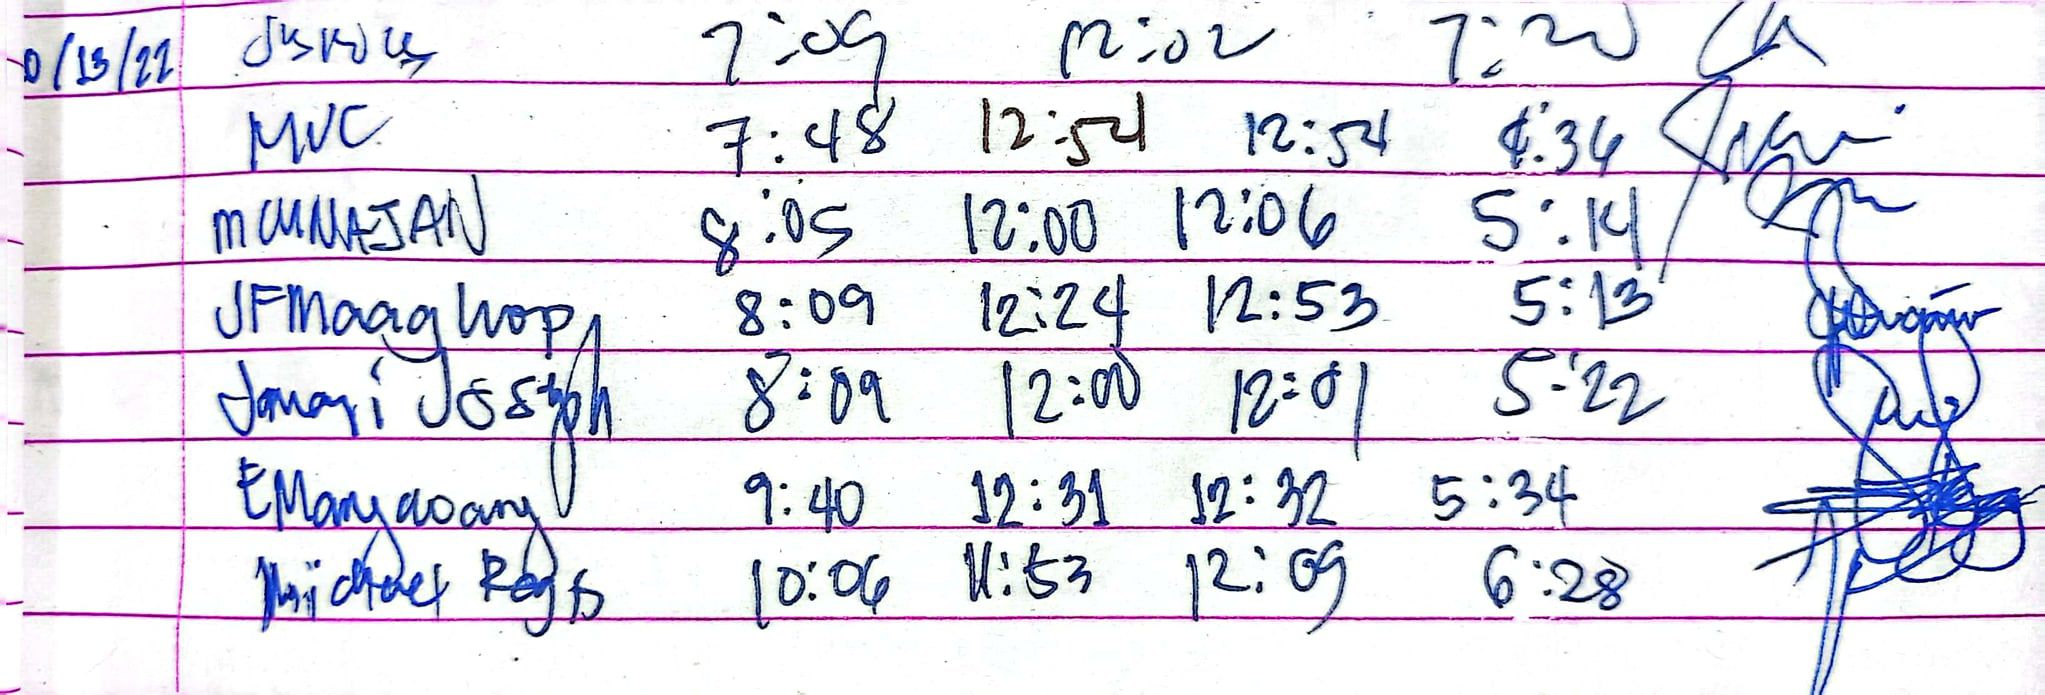 0/13/22 7:09 12:02 7:20
MVC 7:48 12:54 12:54 4:36
8:05 12:00 12:06 5:14
JFMaaghop 8:09 12:24 12:53 5:13
Jomari Joseph 8:09 12:00 12:01 5:22
EMangdoang 9:40 12:31 12:32 5:34
Michael 10:06 11:53 12:09 6:28